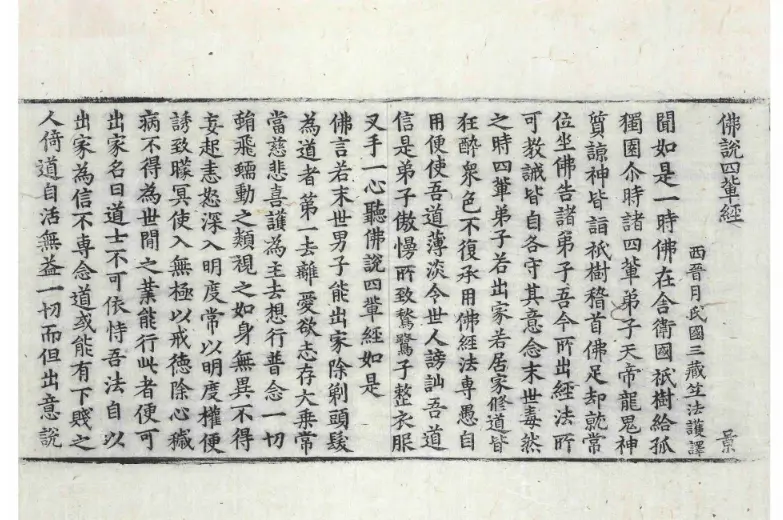 佛說四輩經
西晉月氏國三藏竺法護譯 景
聞如是一時佛在舍衛國祇樹給孤
獨園尒時諸四輩弟子天帝龍鬼神
質諒神皆詣祇樹稽首佛足却就常
位坐佛告諸弟子吾今所出經法所
可教誡皆自各守其意念末世毒然
之時四輩弟子若出家若居家修道皆
狂酔衆色不復承用佛經法専愚自
用便使吾道薄淡令世人謗訕吾道
信是弟子傲慢所致鶖鷺子整衣服
叉手一心聽佛說四輩經如是
佛言若末世男子能出家除剃頭髮
為道者第一去離愛欲志存大乗常
當慈悲喜護為主去想行普念一切
蜎飛蠕動之類視之如身無異不得
妄起恚怒深入明度常以明度權便
誘致矇冥使入無極以戒徳除心穢
病不得為世間之業能行此者便可
出家名曰道士不可依恃吾法自以
出家為信不専念道或能有下賤之
人倚道自活無益一切而但出意說